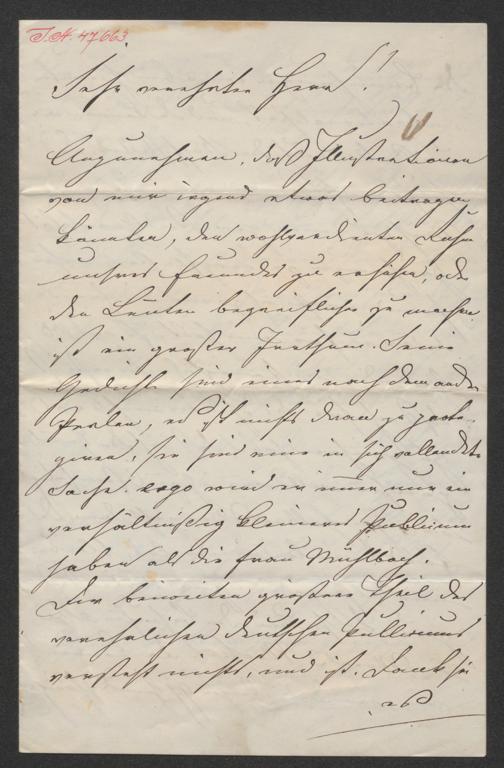 J.N. 47663
Sehr verehrter Herr!
Anzunehmen, daß Illustrationen
von mir irgend etwas beitragen
könnten, den wohlverdienten Ruhm
unseres Freundes zu erhöhen, oder
den Leuten begreiflicher zu machen
ist ein großer Irrthum. Seine
Gedichte sind eines nach dem andern
Perlen, es ist nichts daran zu prote-
giren, sie sind eine in sich vollendete
Sache. ergo wird er immer nur ein
verhältnißig kleineres Publicum
haben als die Frau Mühlbach.
Der beiweiten größere Theil des
verehrlichen deutschen Publicums
versteht nichts, und ist